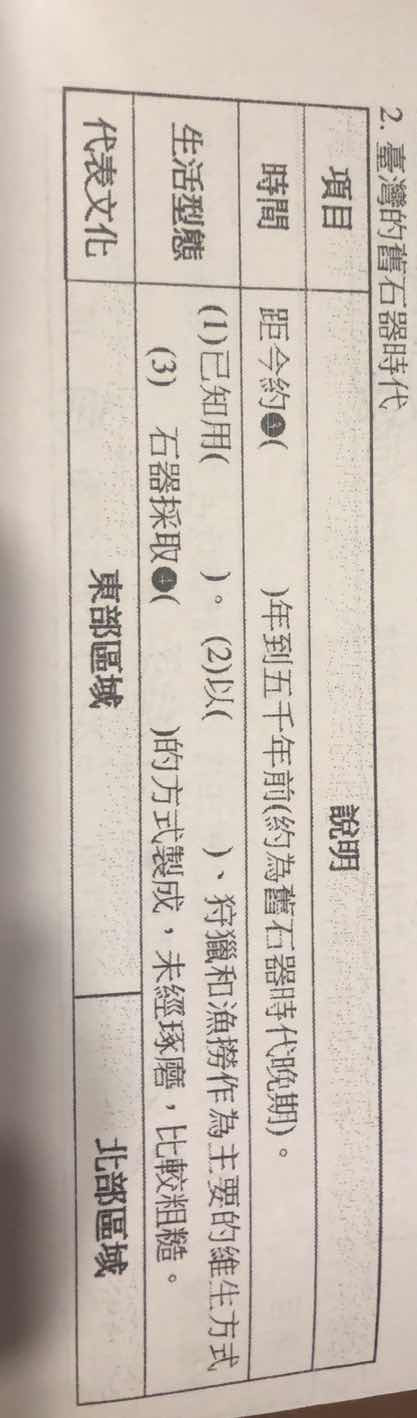 2. 臺灣的舊石器時代
項目 說明
時間 距今約❸( )年到五千年前(約為舊石器時代晚期)。
生活型態 (1)已知用( )。 (2)以( )、狩獵和漁撈作為主要的維生方式
(3) 石器採取❹( )的方式製成，未經琢磨，比較粗糙。
代表文化 東部區域 北部區域